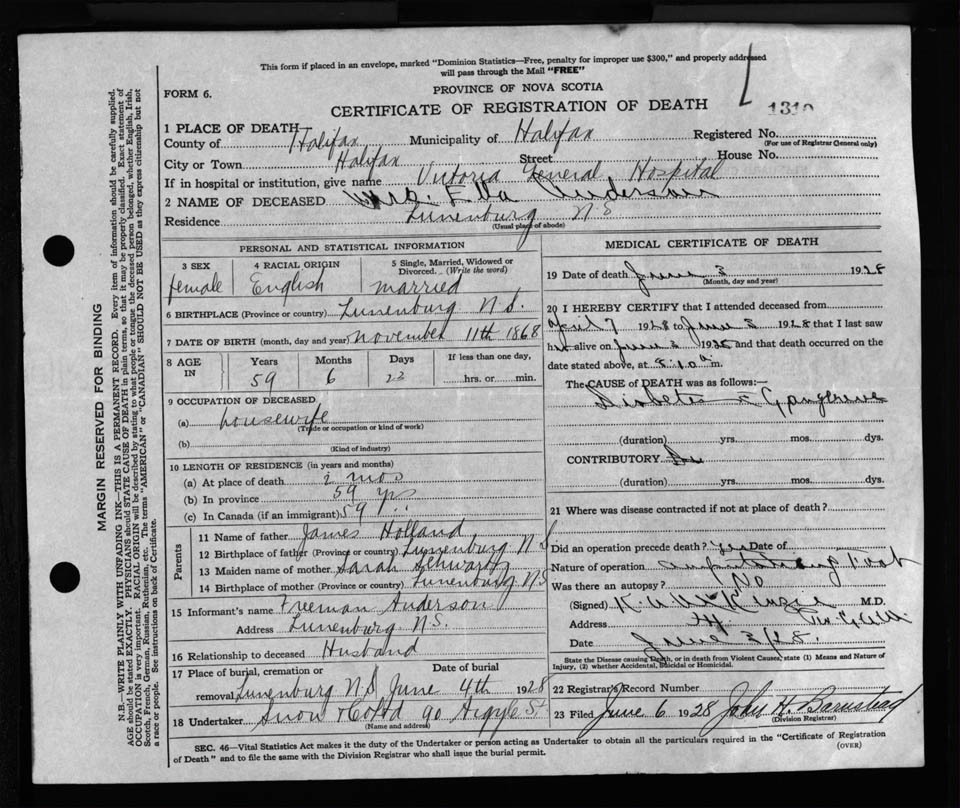 This form if placed in an envelope, marked "Dominion Statistics—Free, penalty for improper use $300," and properly addressed
will pass through the Mail "FREE"
FORM 6.
PROVINCE OF NOVA SCOTIA
CERTIFICATE OF REGISTRATION OF DEATH
1310
1 PLACE OF DEATH
County of Halifax Municipality of Halifax Registered No.
(For use of Registrar General only)
City or Town Halifax Street House No.
If in hospital or institution, give name Victoria General Hospital
2 NAME OF DECEASED Mrs. Ella Anderson
Residence Lunenburg N S
(Usual place of abode)
PERSONAL AND STATISTICAL INFORMATION
3 SEX 4 RACIAL ORIGIN 5 Single, Married, Widowed or
Divorced. (Write the word)
female English married
6 BIRTHPLACE (Province or country) Lunenburg N.S.
7 DATE OF BIRTH (month, day and year) november 11th 1868
8 AGE IN Years Months Days If less than one day,
59 6 22 hrs. or min.
9 OCCUPATION OF DECEASED
(a) housewife
(Trade or occupation or kind of work)
(b)
(Kind of industry)
10 LENGTH OF RESIDENCE (in years and months)
(a) At place of death 2 mos
(b) In province 59 yrs
(c) In Canada (if an immigrant) 59 "
Parents
11 Name of father James Holland
12 Birthplace of father (Province or country) Lunenburg N S
13 Maiden name of mother Sarah Schwartz
14 Birthplace of mother (Province or country) Lunenburg N S
15 Informant's name Freeman Anderson
Address Lunenburg N.S.
16 Relationship to deceased Husband
17 Place of burial, cremation or Date of burial
removal Lunenburg N.S June 4th 1928
18 Undertaker Snow & Co Ltd 90 Argyle St
(Name and address)
MEDICAL CERTIFICATE OF DEATH
19 Date of death June 3 1928
(Month, day and year)
20 I HEREBY CERTIFY that I attended deceased from
April 7 1928 to June 3 1928 that I last saw
her alive on June 3 1928 and that death occurred on the
date stated above, at 8.10 a m.
The CAUSE OF DEATH was as follows:—
Diabetes Gangrene
(duration) yrs. mos. dys.
CONTRIBUTORY
(duration) yrs. mos. dys.
21 Where was disease contracted if not at place of death?
Did an operation precede death? Yes Date of
Nature of operation foot
Was there an autopsy? No
(Signed) M.D.
Address
Date June 3/28.
State the Disease causing Death, or in death from Violent Causes, state (1) Means and Nature of
Injury, (2) whether Accidental, Suicidal or Homicidal.
22 Registrar's Record Number
23 Filed June 6 1928 John H. Barnstead
(Division Registrar)
SEC. 46—Vital Statistics Act makes it the duty of the Undertaker or person acting as Undertaker to obtain all the particulars required in the "Certificate of Registration
of Death" and to file the same with the Division Registrar who shall issue the burial permit.
(OVER)
MARGIN RESERVED FOR BINDING
N.B.—WRITE PLAINLY WITH UNFADING INK—THIS IS A PERMANENT RECORD. Every item of information should be carefully supplied.
AGE should be stated EXACTLY. PHYSICIANS should STATE CAUSE OF DEATH in plain terms, so that it may be properly classified. Exact statement of
OCCUPATION is very important. RACIAL ORIGIN will be described by stating to what people or tongue the deceased person belonged, whether English, Irish,
Scotch, French, German, Russian, Ruthenian, etc. The terms "AMERICAN" or "CANADIAN" SHOULD NOT BE USED as they express citizenship but not
a race or people. See instructions on back of Certificate.